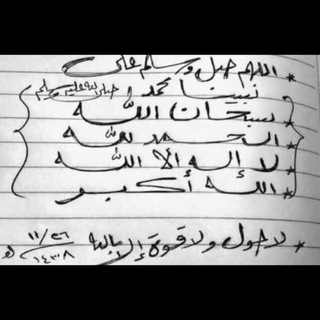 * اللهم صل وسلم على
نبينا محمد صلى الله عليه وسلم
* سبحان الله
* الحمد لله
* لا إله إلا الله
* الله أكبر
* لا حول ولا قوة إلا بالله
١١/٢٦
١٤٣٨ هـ